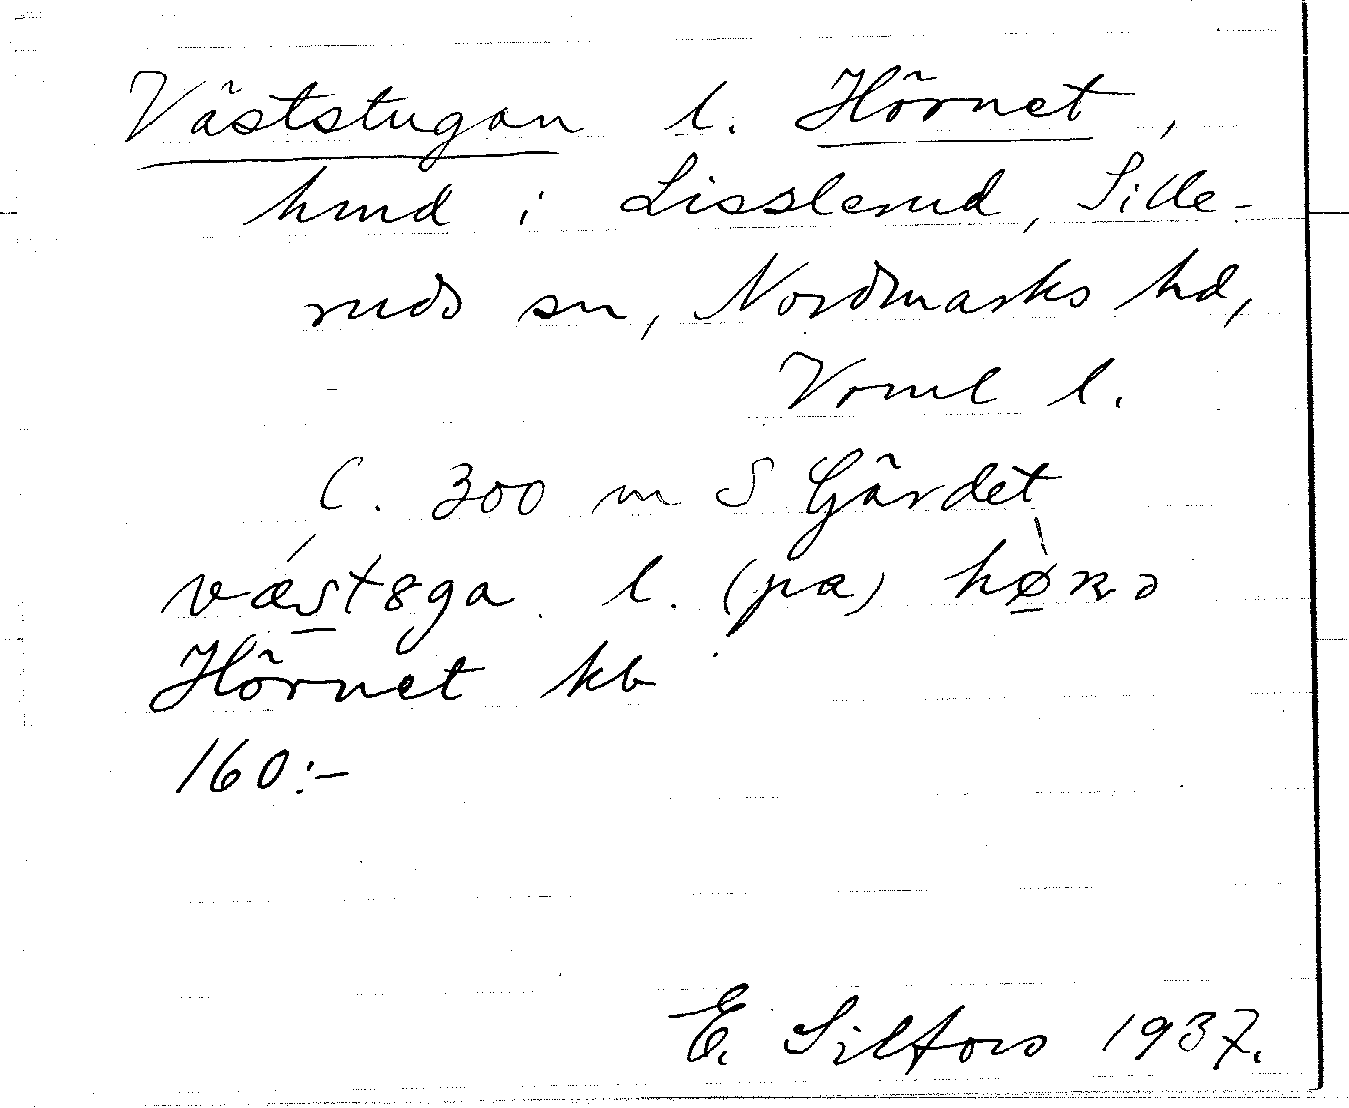 Väststugan l. Hörnet,
hmd i Lisslerud, Sille-
ruds sn, Nordmarks hd,
Vrml l.
C. 300 m S Gärdet
væstsga l. (pa)
Hörnet kb
160:-
E. Silfors 1937.